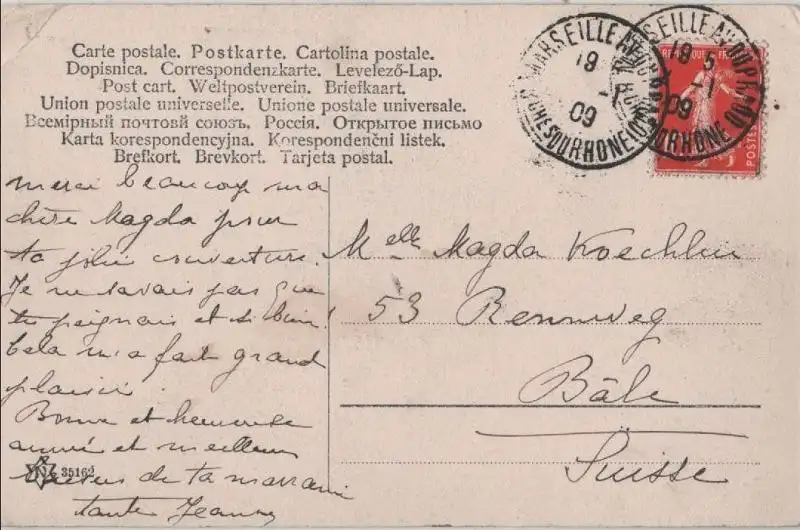 Carte postale. Postkarte. Cartolina postale.
Dopisnica. Correspondenzkarte. Levelező-Lap.
Post cart. Weltpostverein. Briefkaart.
Union postale universelle. Unione postale universale.
Всемірный почтовй союзъ. Россія. Открытое письмо
Karta korespondencyjna. Korespondenční listek.
Brefkort. Brevkort. Tarjeta postal.
MARSEILLE
19
-1
09
BCHES DU RHONE
MARSEILLE AV. DU PRADO
19 5
-1
09
BCHES DU RHONE
POSTES
merci beaucoup ma
chère Magda pour
ta jolie couverture.
Je ne savais pas que
tu peignais et si bien!
Cela m'a fait grand
plaisir.
Bonne et heureuse
année et meilleurs
voeux de ta marraine
tante Jeanne
35162
Melle Magda Koechlin
53 Rennweg
Bâle
Suisse